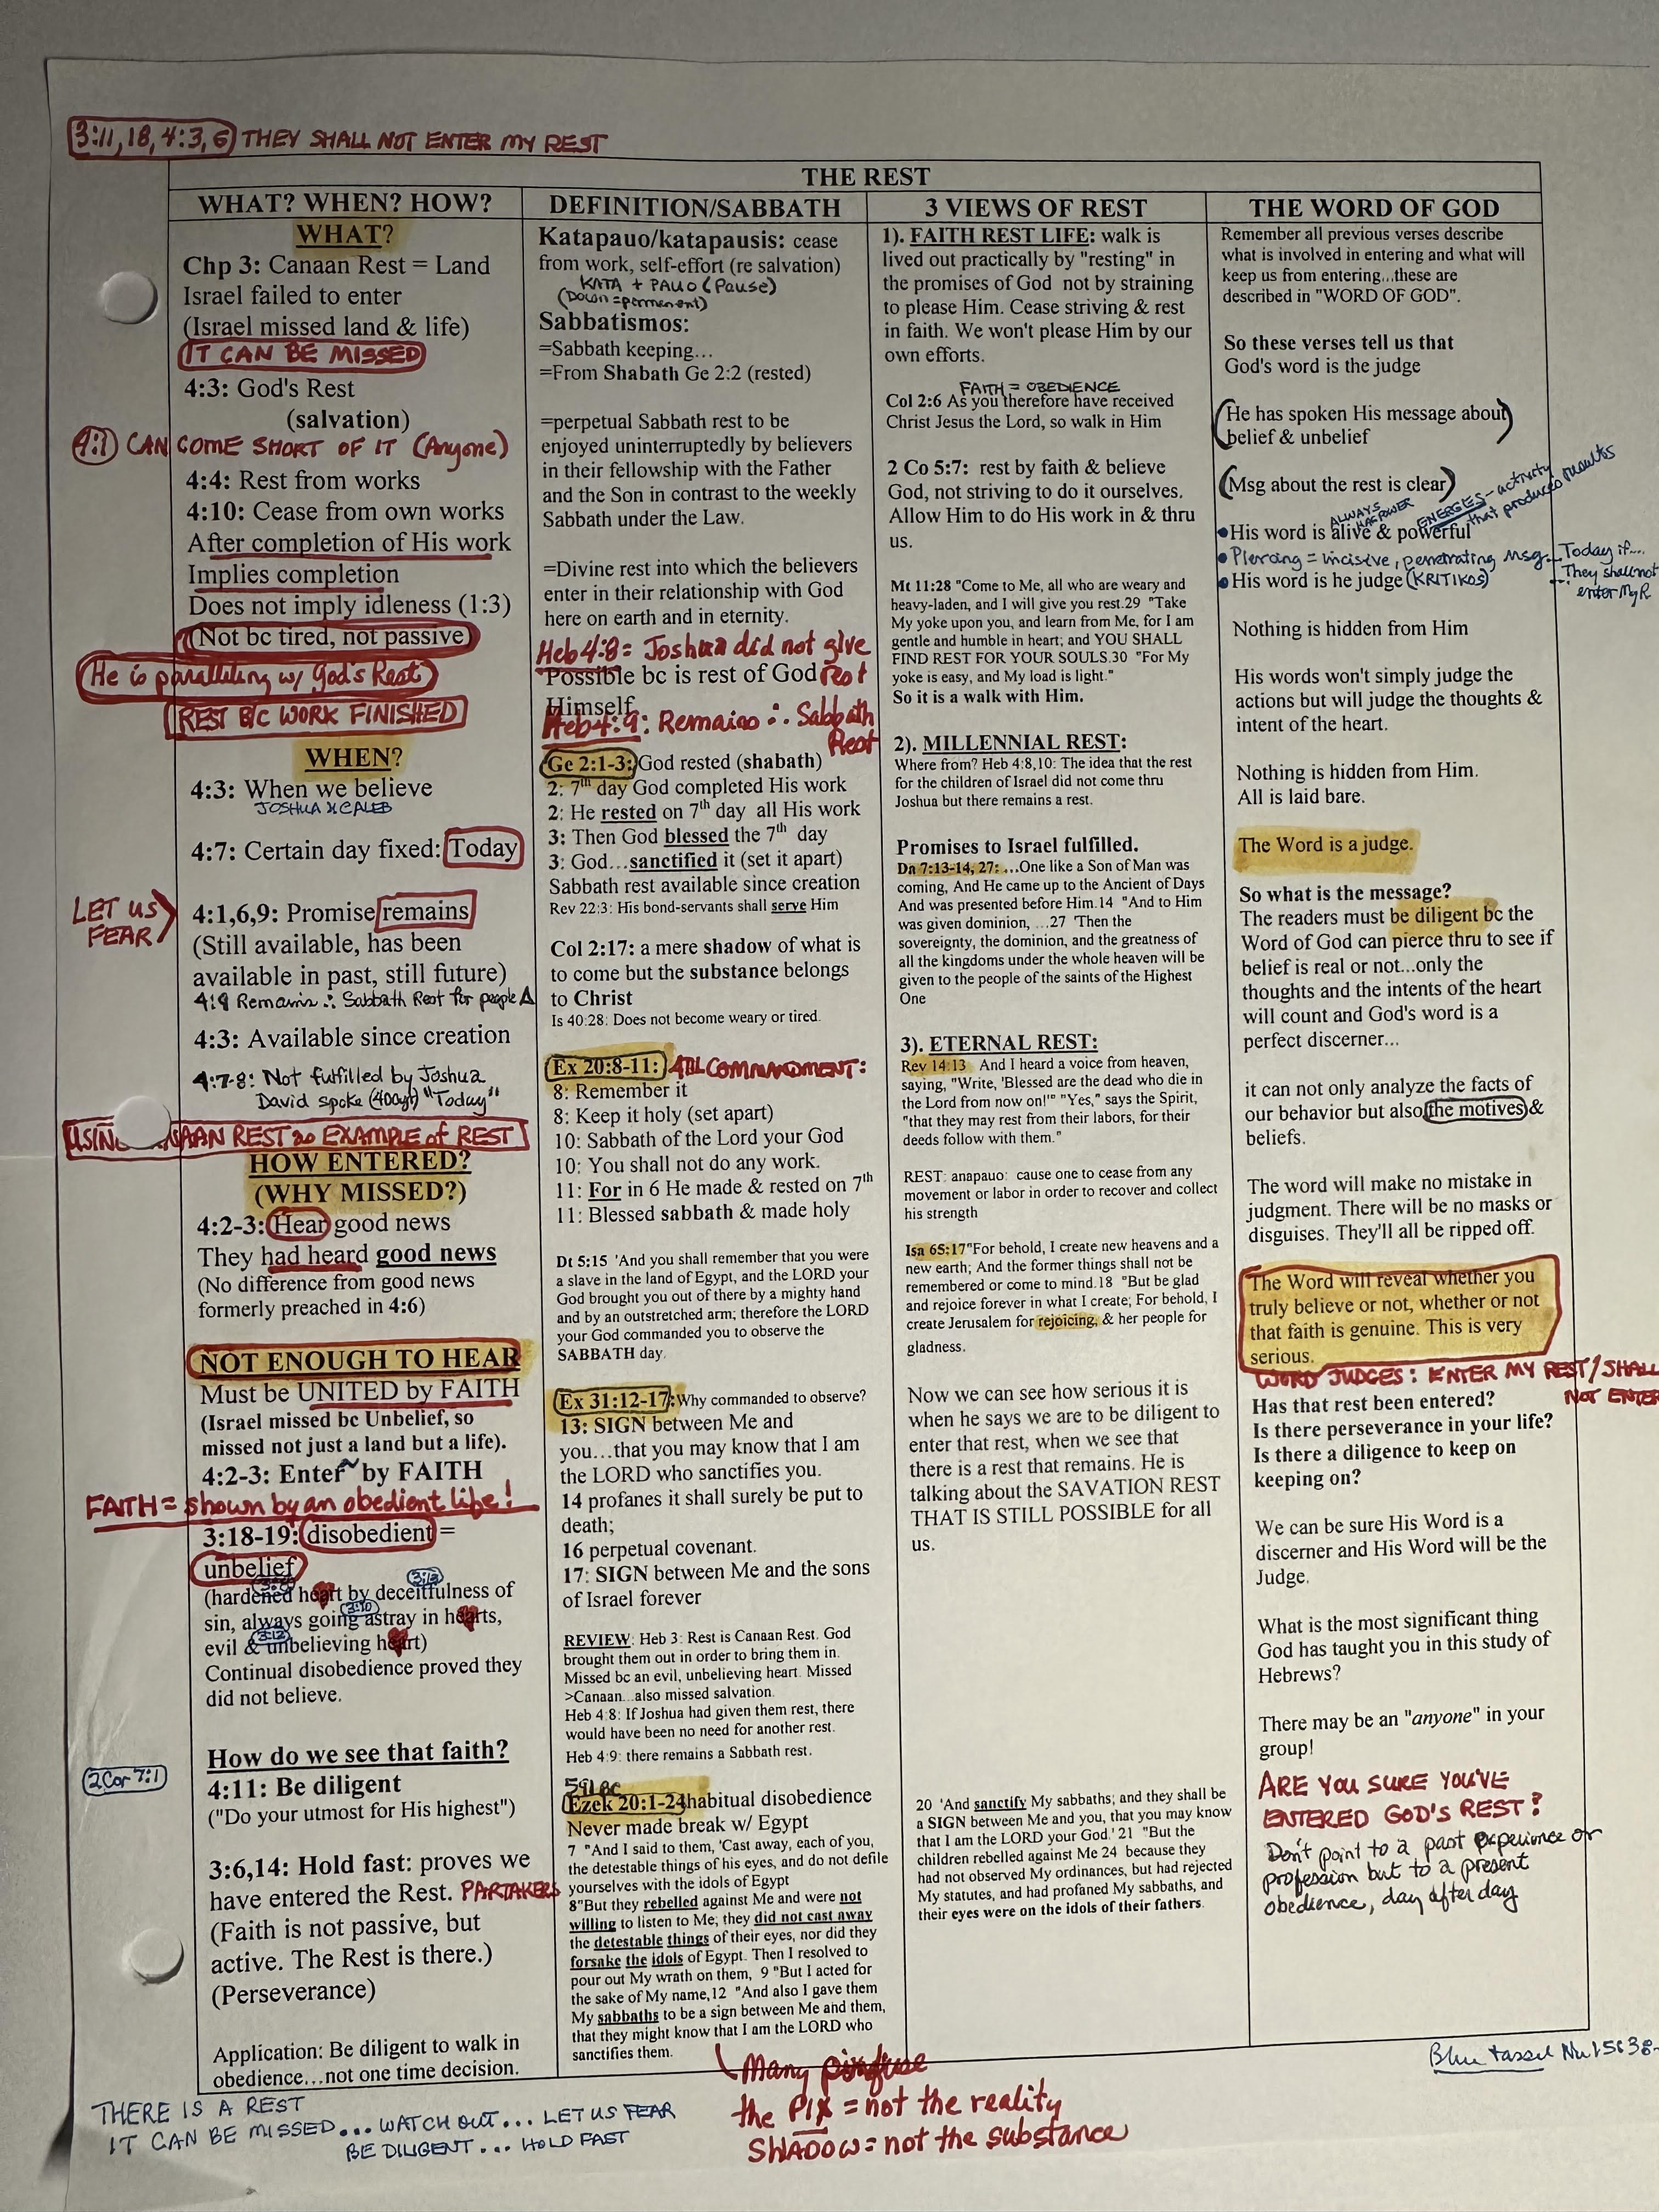 3:11, 18, 4:3, 6 THEY SHALL NOT ENTER MY REST
THE REST
WHAT? WHEN? HOW?
WHAT?
Chp 3: Canaan Rest = Land
Israel failed to enter
(Israel missed land & life)
IT CAN BE MISSED
4:3: God's Rest
(salvation)
4:1 CAN COME SHORT OF IT (Anyone)
4:4: Rest from works
4:10: Cease from own works
After completion of His work
Implies completion
Does not imply idleness (1:3)
(Not bc tired, not passive)
He is paralleling w/ God's Rest
REST B/C WORK FINISHED
WHEN?
4:3: When we believe
JOSHUA & CALEB
4:7: Certain day fixed: Today
LET US
FEAR
4:1,6,9: Promise remains
(Still available, has been
available in past, still future)
4:9 Remains ∴ Sabbath Rest for people Δ
4:3: Available since creation
4:7-8: Not fulfilled by Joshua
David spoke (400yr) "Today"
REST as EXAMPLE of REST
HOW ENTERED?
(WHY MISSED?)
4:2-3: Hear good news
They had heard good news
(No difference from good news
formerly preached in 4:6)
NOT ENOUGH TO HEAR
Must be UNITED by FAITH
(Israel missed bc Unbelief, so
missed not just a land but a life).
4:2-3: Enter by FAITH
FAITH = shown by an obedient life!
3:18-19: disobedient =
unbelief
3:8 3:13
(hardened heart by deceitfulness of
3:10
sin, always going astray in hearts,
3:12
evil & unbelieving heart)
Continual disobedience proved they
did not believe.
How do we see that faith?
2 Cor 7:1
4:11: Be diligent
("Do your utmost for His highest")
3:6,14: Hold fast: proves we
have entered the Rest. PARTAKERS
(Faith is not passive, but
active. The Rest is there.)
(Perseverance)
Application: Be diligent to walk in
obedience...not one time decision.
DEFINITION/SABBATH
Katapauo/katapausis: cease
from work, self-effort (re salvation)
KATA + PAUO (Pause)
(Down = permanent)
Sabbatismos:
=Sabbath keeping...
=From Shabath Ge 2:2 (rested)
=perpetual Sabbath rest to be
enjoyed uninterruptedly by believers
in their fellowship with the Father
and the Son in contrast to the weekly
Sabbath under the Law.
=Divine rest into which the believers
enter in their relationship with God
here on earth and in eternity.
Heb 4:8 = Joshua did not give
Rest
Possible bc is rest of God
Himself
Heb 4:9: Remains ∴ Sabbath
Rest
Ge 2:1-3: God rested (shabath)
2: 7th day God completed His work
2: He rested on 7th day all His work
3: Then God blessed the 7th day
3: God...sanctified it (set it apart)
Sabbath rest available since creation
Rev 22:3: His bond-servants shall serve Him
Col 2:17: a mere shadow of what is
to come but the substance belongs
to Christ
Is 40:28: Does not become weary or tired.
Ex 20:8-11: 4th COMMANDMENT:
8: Remember it
8: Keep it holy (set apart)
10: Sabbath of the Lord your God
10: You shall not do any work.
11: For in 6 He made & rested on 7th
11: Blessed sabbath & made holy
Dt 5:15 'And you shall remember that you were
a slave in the land of Egypt, and the LORD your
God brought you out of there by a mighty hand
and by an outstretched arm; therefore the LORD
your God commanded you to observe the
SABBATH day.
Ex 31:12-17: Why commanded to observe?
13: SIGN between Me and
you...that you may know that I am
the LORD who sanctifies you.
14 profanes it shall surely be put to
death;
16 perpetual covenant.
17: SIGN between Me and the sons
of Israel forever
REVIEW: Heb 3: Rest is Canaan Rest. God
brought them out in order to bring them in.
Missed bc an evil, unbelieving heart. Missed
>Canaan...also missed salvation.
Heb 4:8: If Joshua had given them rest, there
would have been no need for another rest.
Heb 4:9: there remains a Sabbath rest.
591 BC
Ezek 20:1-24 habitual disobedience
Never made break w/ Egypt
7 "And I said to them, 'Cast away, each of you,
the detestable things of his eyes, and do not defile
yourselves with the idols of Egypt
8"But they rebelled against Me and were not
willing to listen to Me; they did not cast away
the detestable things of their eyes, nor did they
forsake the idols of Egypt. Then I resolved to
pour out My wrath on them, 9 "But I acted for
the sake of My name,12 "And also I gave them
My sabbaths to be a sign between Me and them,
that they might know that I am the LORD who
sanctifies them.
3 VIEWS OF REST
1). FAITH REST LIFE: walk is
lived out practically by "resting" in
the promises of God not by straining
to please Him. Cease striving & rest
in faith. We won't please Him by our
own efforts.
FAITH = OBEDIENCE
Col 2:6 As you therefore have received
Christ Jesus the Lord, so walk in Him
2 Co 5:7: rest by faith & believe
God, not striving to do it ourselves.
Allow Him to do His work in & thru
us.
Mt 11:28 "Come to Me, all who are weary and
heavy-laden, and I will give you rest.29 "Take
My yoke upon you, and learn from Me, for I am
gentle and humble in heart; and YOU SHALL
FIND REST FOR YOUR SOULS.30 "For My
yoke is easy, and My load is light."
So it is a walk with Him.
2). MILLENNIAL REST:
Where from? Heb 4:8,10: The idea that the rest
for the children of Israel did not come thru
Joshua but there remains a rest.
Promises to Israel fulfilled.
Dn 7:13-14, 27: ...One like a Son of Man was
coming, And He came up to the Ancient of Days
And was presented before Him.14 "And to Him
was given dominion, ...27 'Then the
sovereignty, the dominion, and the greatness of
all the kingdoms under the whole heaven will be
given to the people of the saints of the Highest
One
3). ETERNAL REST:
Rev 14:13 And I heard a voice from heaven,
saying, "Write, 'Blessed are the dead who die in
the Lord from now on!'" "Yes," says the Spirit,
"that they may rest from their labors, for their
deeds follow with them."
REST: anapauo: cause one to cease from any
movement or labor in order to recover and collect
his strength
Isa 65:17"For behold, I create new heavens and a
new earth; And the former things shall not be
remembered or come to mind.18 "But be glad
and rejoice forever in what I create; For behold, I
create Jerusalem for rejoicing, & her people for
gladness.
Now we can see how serious it is
when he says we are to be diligent to
enter that rest, when we see that
there is a rest that remains. He is
talking about the SAVATION REST
THAT IS STILL POSSIBLE for all
us.
20 'And sanctify My sabbaths; and they shall be
a SIGN between Me and you, that you may know
that I am the LORD your God.' 21 "But the
children rebelled against Me 24 because they
had not observed My ordinances, but had rejected
My statutes, and had profaned My sabbaths, and
their eyes were on the idols of their fathers.
THE WORD OF GOD
Remember all previous verses describe
what is involved in entering and what will
keep us from entering...these are
described in "WORD OF GOD".
So these verses tell us that
God's word is the judge
(He has spoken His message about
belief & unbelief)
(Msg about the rest is clear)
ALWAYS HAS POWER
ENERGES - activity
that produces results
His word is alive & powerful
Piercing = incisive, penetrating msg... Today if....
They shall not
enter My R
His word is he judge (KRITIKOS)
Nothing is hidden from Him
His words won't simply judge the
actions but will judge the thoughts &
intent of the heart.
Nothing is hidden from Him.
All is laid bare.
The Word is a judge.
So what is the message?
The readers must be diligent bc the
Word of God can pierce thru to see if
belief is real or not...only the
thoughts and the intents of the heart
will count and God's word is a
perfect discerner...
it can not only analyze the facts of
our behavior but also the motives &
beliefs.
The word will make no mistake in
judgment. There will be no masks or
disguises. They'll all be ripped off.
The Word will reveal whether you
truly believe or not, whether or not
that faith is genuine. This is very
serious.
WORD JUDGES: ENTER MY REST/SHALL
NOT ENTER
Has that rest been entered?
Is there perseverance in your life?
Is there a diligence to keep on
keeping on?
We can be sure His Word is a
discerner and His Word will be the
Judge.
What is the most significant thing
God has taught you in this study of
Hebrews?
There may be an "anyone" in your
group!
ARE YOU SURE YOU'VE
ENTERED GOD'S REST?
Don't point to a past experience or
profession but to a present
obedience, day after day
Blue tassel Nu 15:38-
THERE IS A REST
IT CAN BE MISSED... WATCH OUT... LET US FEAR
BE DILIGENT... HOLD FAST
Many
the PIX = not the reality
SHADOW = not the substance